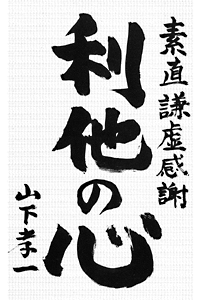 素直謙虚感謝
利他の心
山下孝一